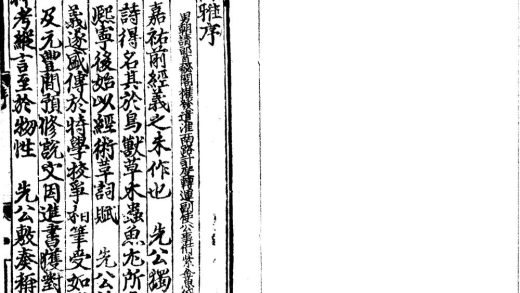 雅序
男朝請秘閣權發遣淮南路計度轉運副使公事借紫金魚袋
嘉祐前經義之未作也 先公獨
詩得名其於鳥獸草木蟲魚尤所
熙寧後始以經術革詞賦 先公
義遂盛傳於時學校爭相筆受如
及元豐間預修說文因進書獲對
考縱言至於物性 先公敷奏稱